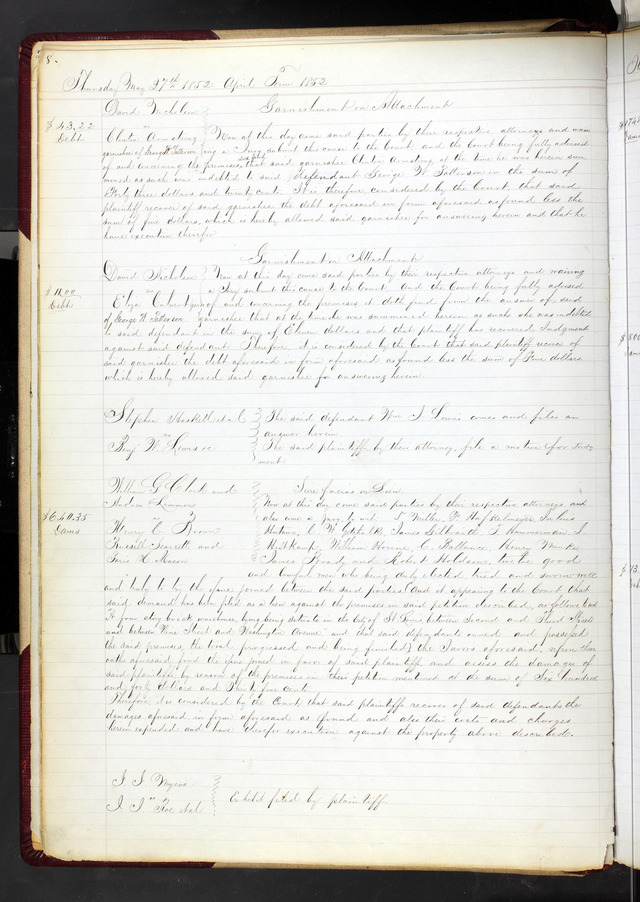 8.
Thursday May 27th 1852 April Term 1852
David Nicholson Garnishment on Attachment
$ 43,22
Debt
vs
Armstrong Now at this day come said parties by their respective attorneys and waiv
garnishee of George W Patterson ing a Jury submit this cause to the Court and the Court being fully advised
of and concerning the premises that said garnishee Armstrong at the time he was herein sum
moned as such was indebted to said defendant George W Patterson in the sum of
Forty three dollars and twenty cents It is therefore considered by the Court that said
plaintiff recover of said garnishee the debt aforesaid in form aforesaid as found less the
sum of five dollars, which is hereby allowed said garnishee for answering herein and that he
have execution therefor
Garnishment on Attachment
David Nicholson Now at this day come said parties by their respective attorneys and waiving
$ 11,00
Debt
vs a Jury submit this cause to the Court And the Court being fully advised
of and concerning the premises it doth find from the answer of said
of George W. Patterson garnishee that at the time he was summoned herein as such he was indebted
to said defendant in the sum of Eleven dollars and that plaintiff has recovered Judgment
against said defendant Therefore it is considered by the Court that said plaintiff recover of
said garnishee the debt aforesaid in form aforesaid as found less the sum of Five dollars
which is hereby allowed said garnishee for answering herein
Stephen Haskell et al The said defendant Wm J Lewis comes and files an
vs answer herein
Benj W Lewis et The said plaintiffs by their attorney file a motion for Judg
ment
Will G Clark and Scire facias on Lien
Hudson Now at this day come said parties by their respective attorneys and
vs also come a Jury to wit Miller, F Hoffelmeyer Julius
$ 640.35
Dams
Henry C Brown C W James Galbraith T Hammerman J
Russell Scarritt and H Skamp, William Horine, C Henry
H Macon James Brady and Robert Holdson, twelve good
and lawful men who being duly elected tried and sworn well
and truly to try the issue joined between the said parties And it appearing to the Court that
said demand has been filed as a lien against the premises in said petition described, as follows to wit
A four story brick warehouse being situate in the City of St Louis between Second and Third Streets
and between Vine Street and Washington Avenue and that said defendants owned and possessed
the said premises, the trial progressed and being finished the Jurors aforesaid, upon their
oaths aforesaid find the issue joined in favor of said plaintiffs and assess the damages of
said plaintiffs by reason of the premises in their petition mentioned at the sum of Six hundred
and forty dollars and Thirty five cents
Therefore it is considered by the Court that said plaintiffs recover of said defendants the
damages aforesaid in form aforesaid as found and also their costs and charges
herein expended and have therefor execution against the property above described.
J J Myers
vs Exhibit filed by plaintiff
J. J. et al